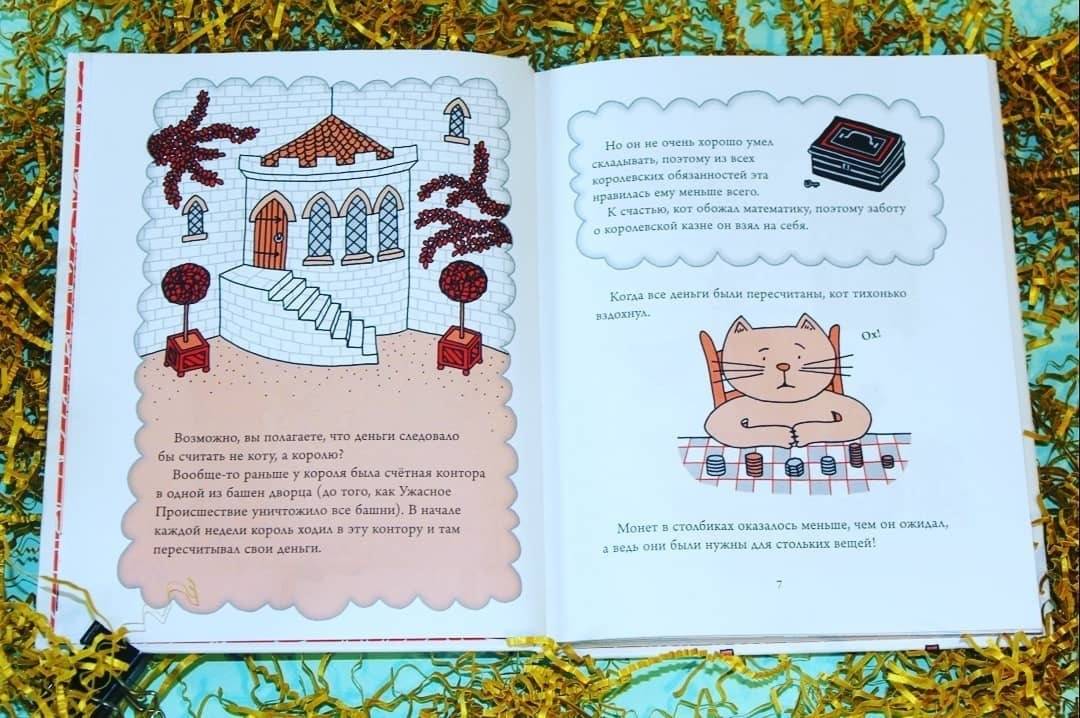 Возможно, вы полагаете, что деньги следовало
бы считать не коту, а королю?
Вообще-то раньше у короля была счётная контора
в одной из башен дворца (до того, как Ужасное
Происшествие уничтожило все башни). В начале
каждой недели король ходил в эту контору и там
пересчитывал свои деньги.
Но он не очень хорошо умел
складывать, поэтому из всех
королевских обязанностей эта
нравилась ему меньше всего.
К счастью, кот обожал математику, поэтому заботу
о королевской казне он взял на себя.
Когда все деньги были пересчитаны, кот тихонько
вздохнул.
Ох!
Монет в столбиках оказалось меньше, чем он ожидал,
а ведь они были нужны для стольких вещей!
7